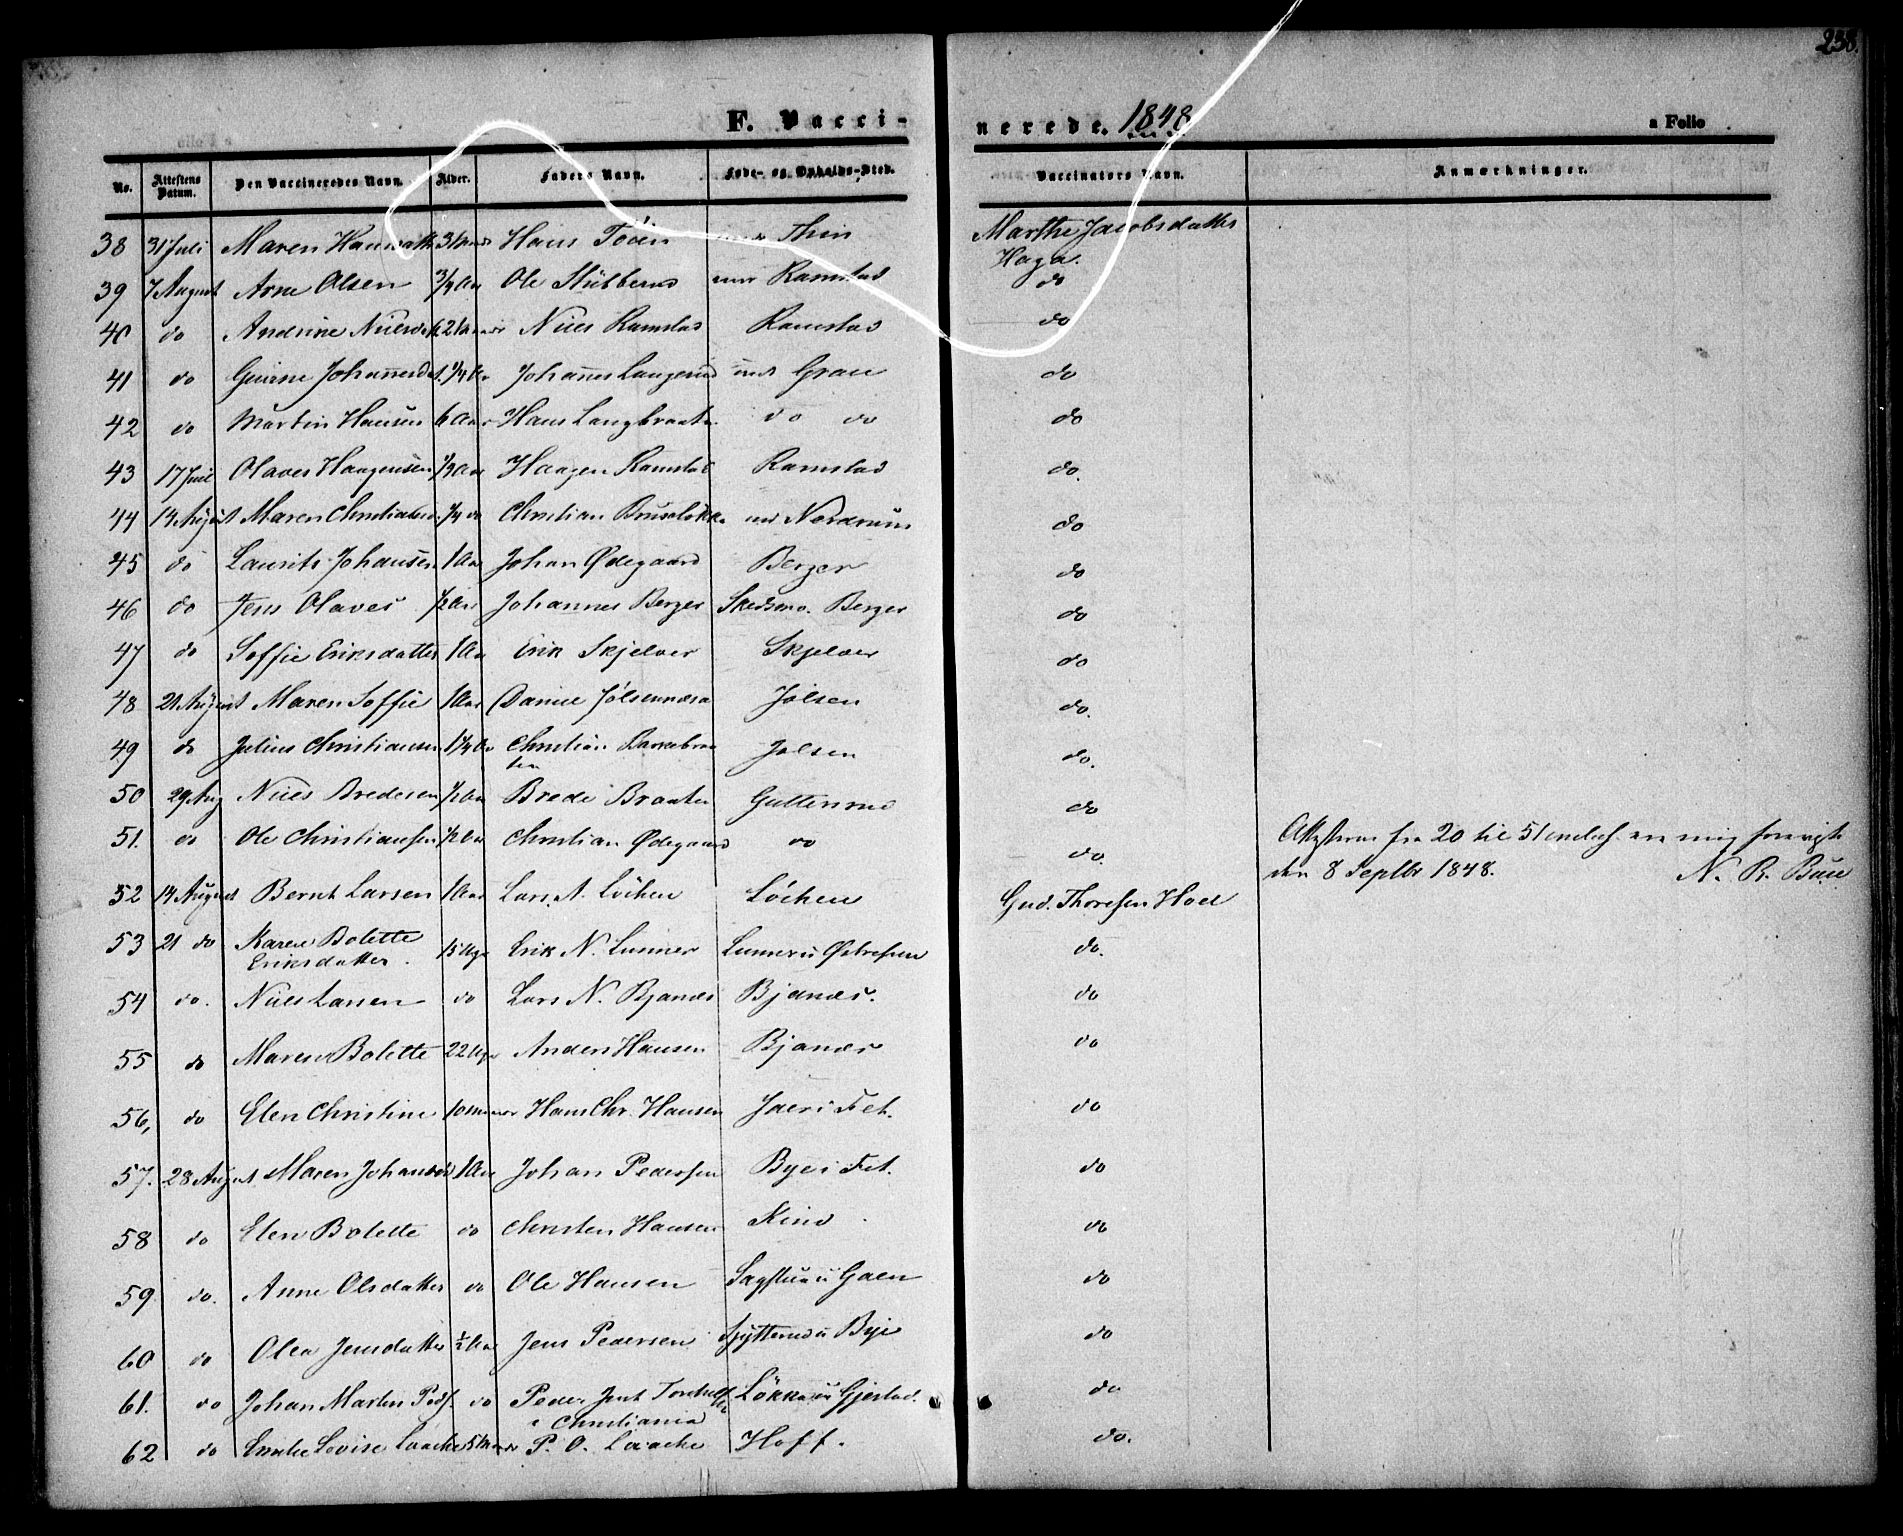 238.
F. Vacci-
nerede. 1848
a Folio
No. Attestens Datum. Den Vaccineredes Navn. Alder. Faders Navn. Føde- og Opholds-Sted. Vaccinators Navn. Anmærkninger.
38 31 Juli Maren Hansdatter Hans Thin Marthe Jacobsdatter Haga.
39 7 August Arne Olsen 3/4 Aar Ole Stubberud under Ramstad do
40 do Andrine Nilsd Nils Ramstad Ramstad do
41 do Johannesd 1/4 Aar Johannes Langerud under Grau do
42 do Martin Hansen 6 Aar Hans Langbraaten do do do
43 17 Juli Olaves Haagensen 1/2 Aar Haagen Ramstad Ramstad do.
44 14 August Maren Christiansd. 1/4 do Christian Bruseløkka und Nordrum do
45 do Laurits Johansen 1 Aar Johan Ødegaard Berger do
46 do Jens Olaves 1/2 Aar Johannes Berger Skedsmo. Berger do
47 do Soffie Eriksdatter 1 Aar Erik Skjelver Skjelver do
48 21 August Maren Soffie 1 Aar Daniel Jølsen do.
49 do Julius Christiansen 1 1/4 Aar Christian Barkebraaten Jølsen do.
50 29 Aug Nils Bredesen 1/2 Aar Brede Braaten Guttersrud do
51. do Ole Christiansen 1/2 Aar Christian Ødegaard do do. Attesterne fra 20 til 51 inclus. ere mig foreviste
den 8 Septbr 1848. N. R. Bull
52 14 August Bernt Larsen 1 Aar Lars A. Løken Løken Gud. Thoresen Hoel
53 21 do Karen Bolette Eriksdatter. 15 Uger Erik N. Lunner Lunner do.
54 do. Niels Larsen do Lars N. Bjanæs Bjanæs. do
55 do Maren Bolette 22 Uger Anders Hansen Bjanæs do
56, do Elen Christine 10 Maaneder Hans Chr. Hansen Jær i Fet. do
57. 28 August Maren Johansd 1 Aar Johan Pedersen Bye i Fet. do
58 do Elen Bolette do Christen Hansen Kind do
59 do. Anne Olsdatter do Ole Hansen Sagstua u Gaen do
60 do Olea Jensdatter 1/2 Aar Jens Pedersen Spytterud u Bye do
61. do Johan Martin Peds. do Peder Jent
i Christiania Løkka u Gjestad. do
62 do Emilie Lovise Laache 5 Maaneder P. O. Laache Hoff. do.